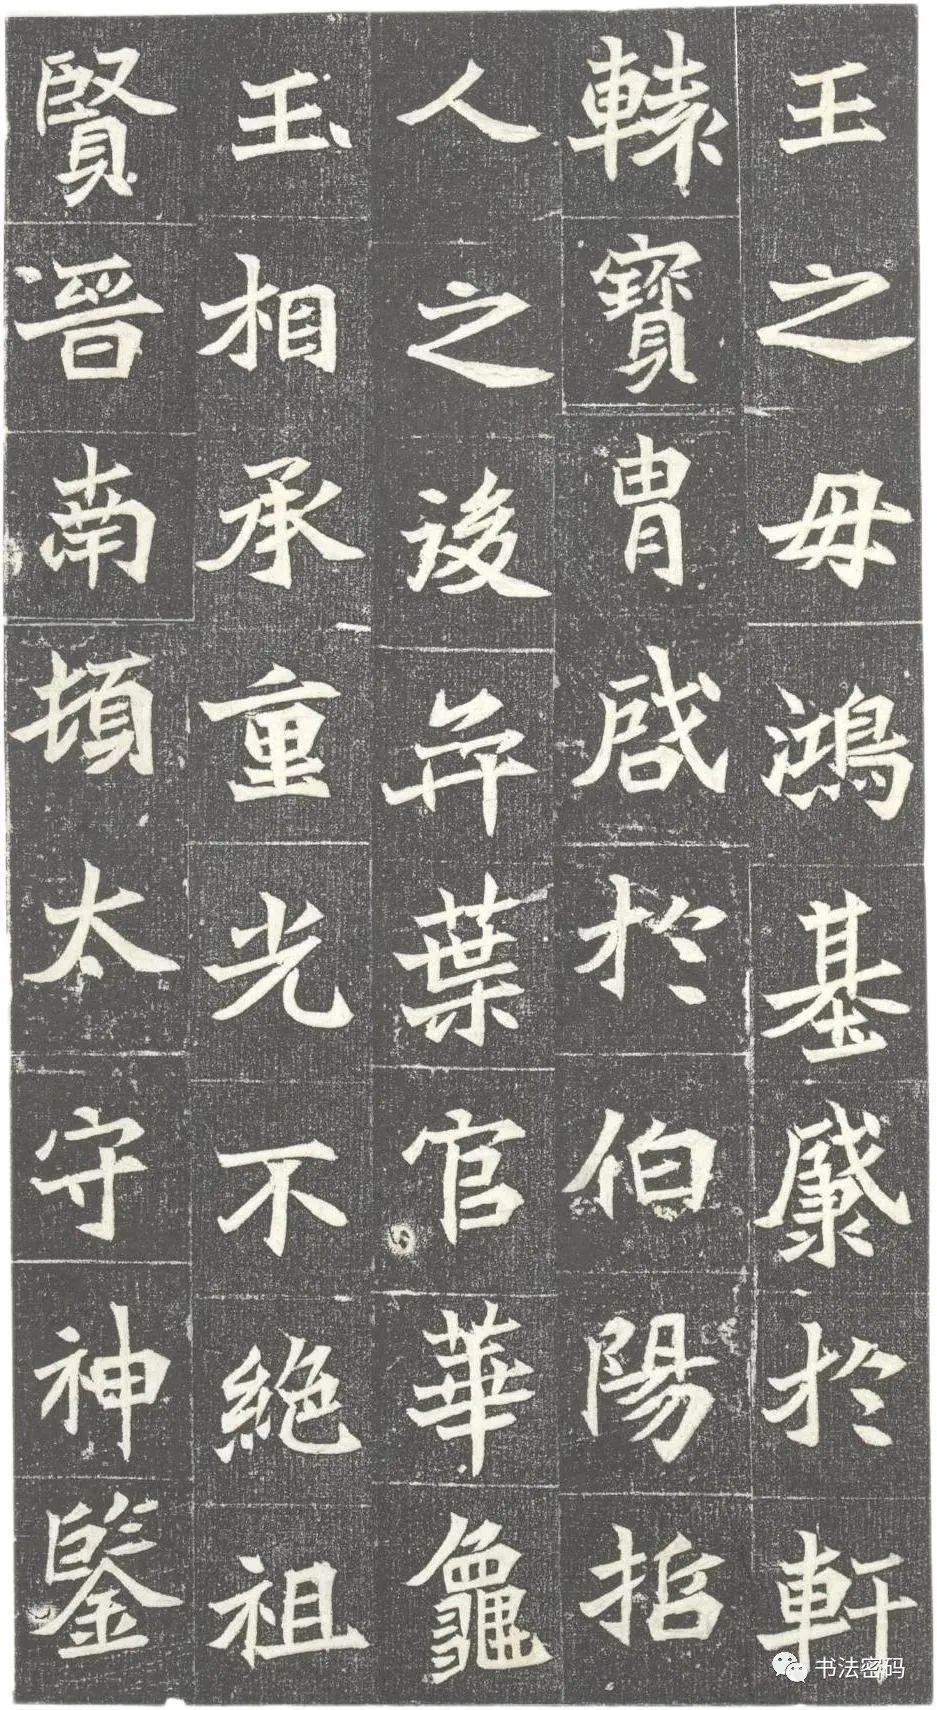 王之毋鴻基厳於軒
轅寶胄啟於伯陽招
人之後并葉官華龜
玉相承重光不絶祖
賢晉南頓太守神鑒
书法密码